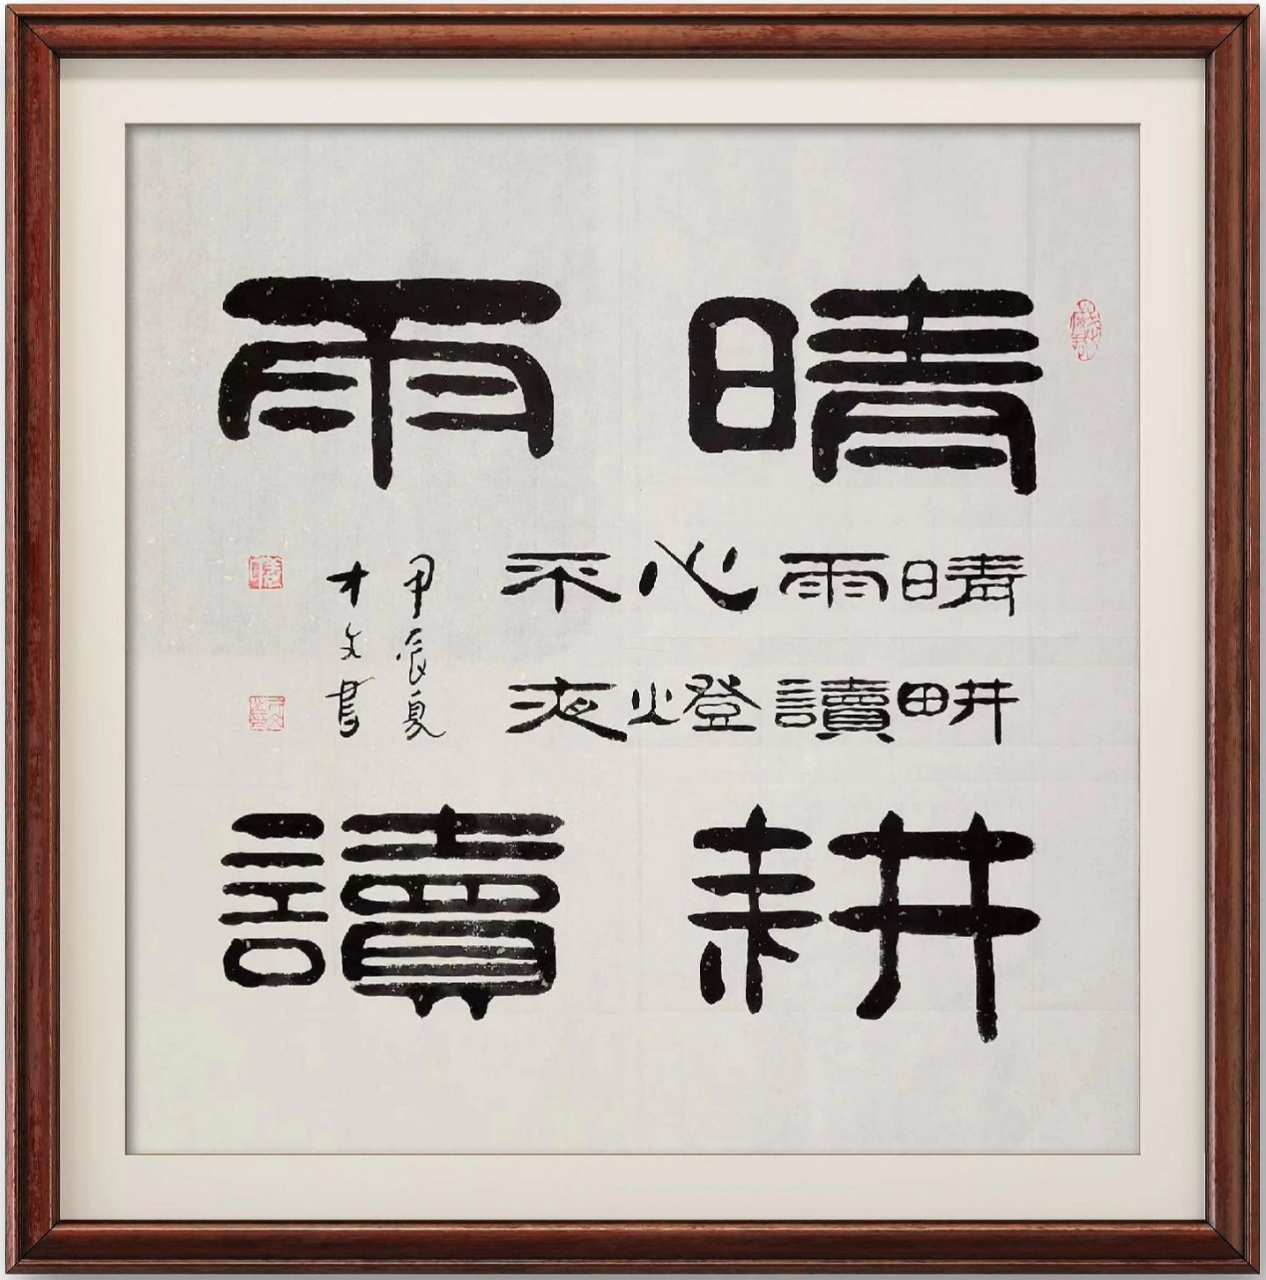 晴耕
雨讀
晴畊
雨讀
心燈
不夜
甲辰夏
才文書